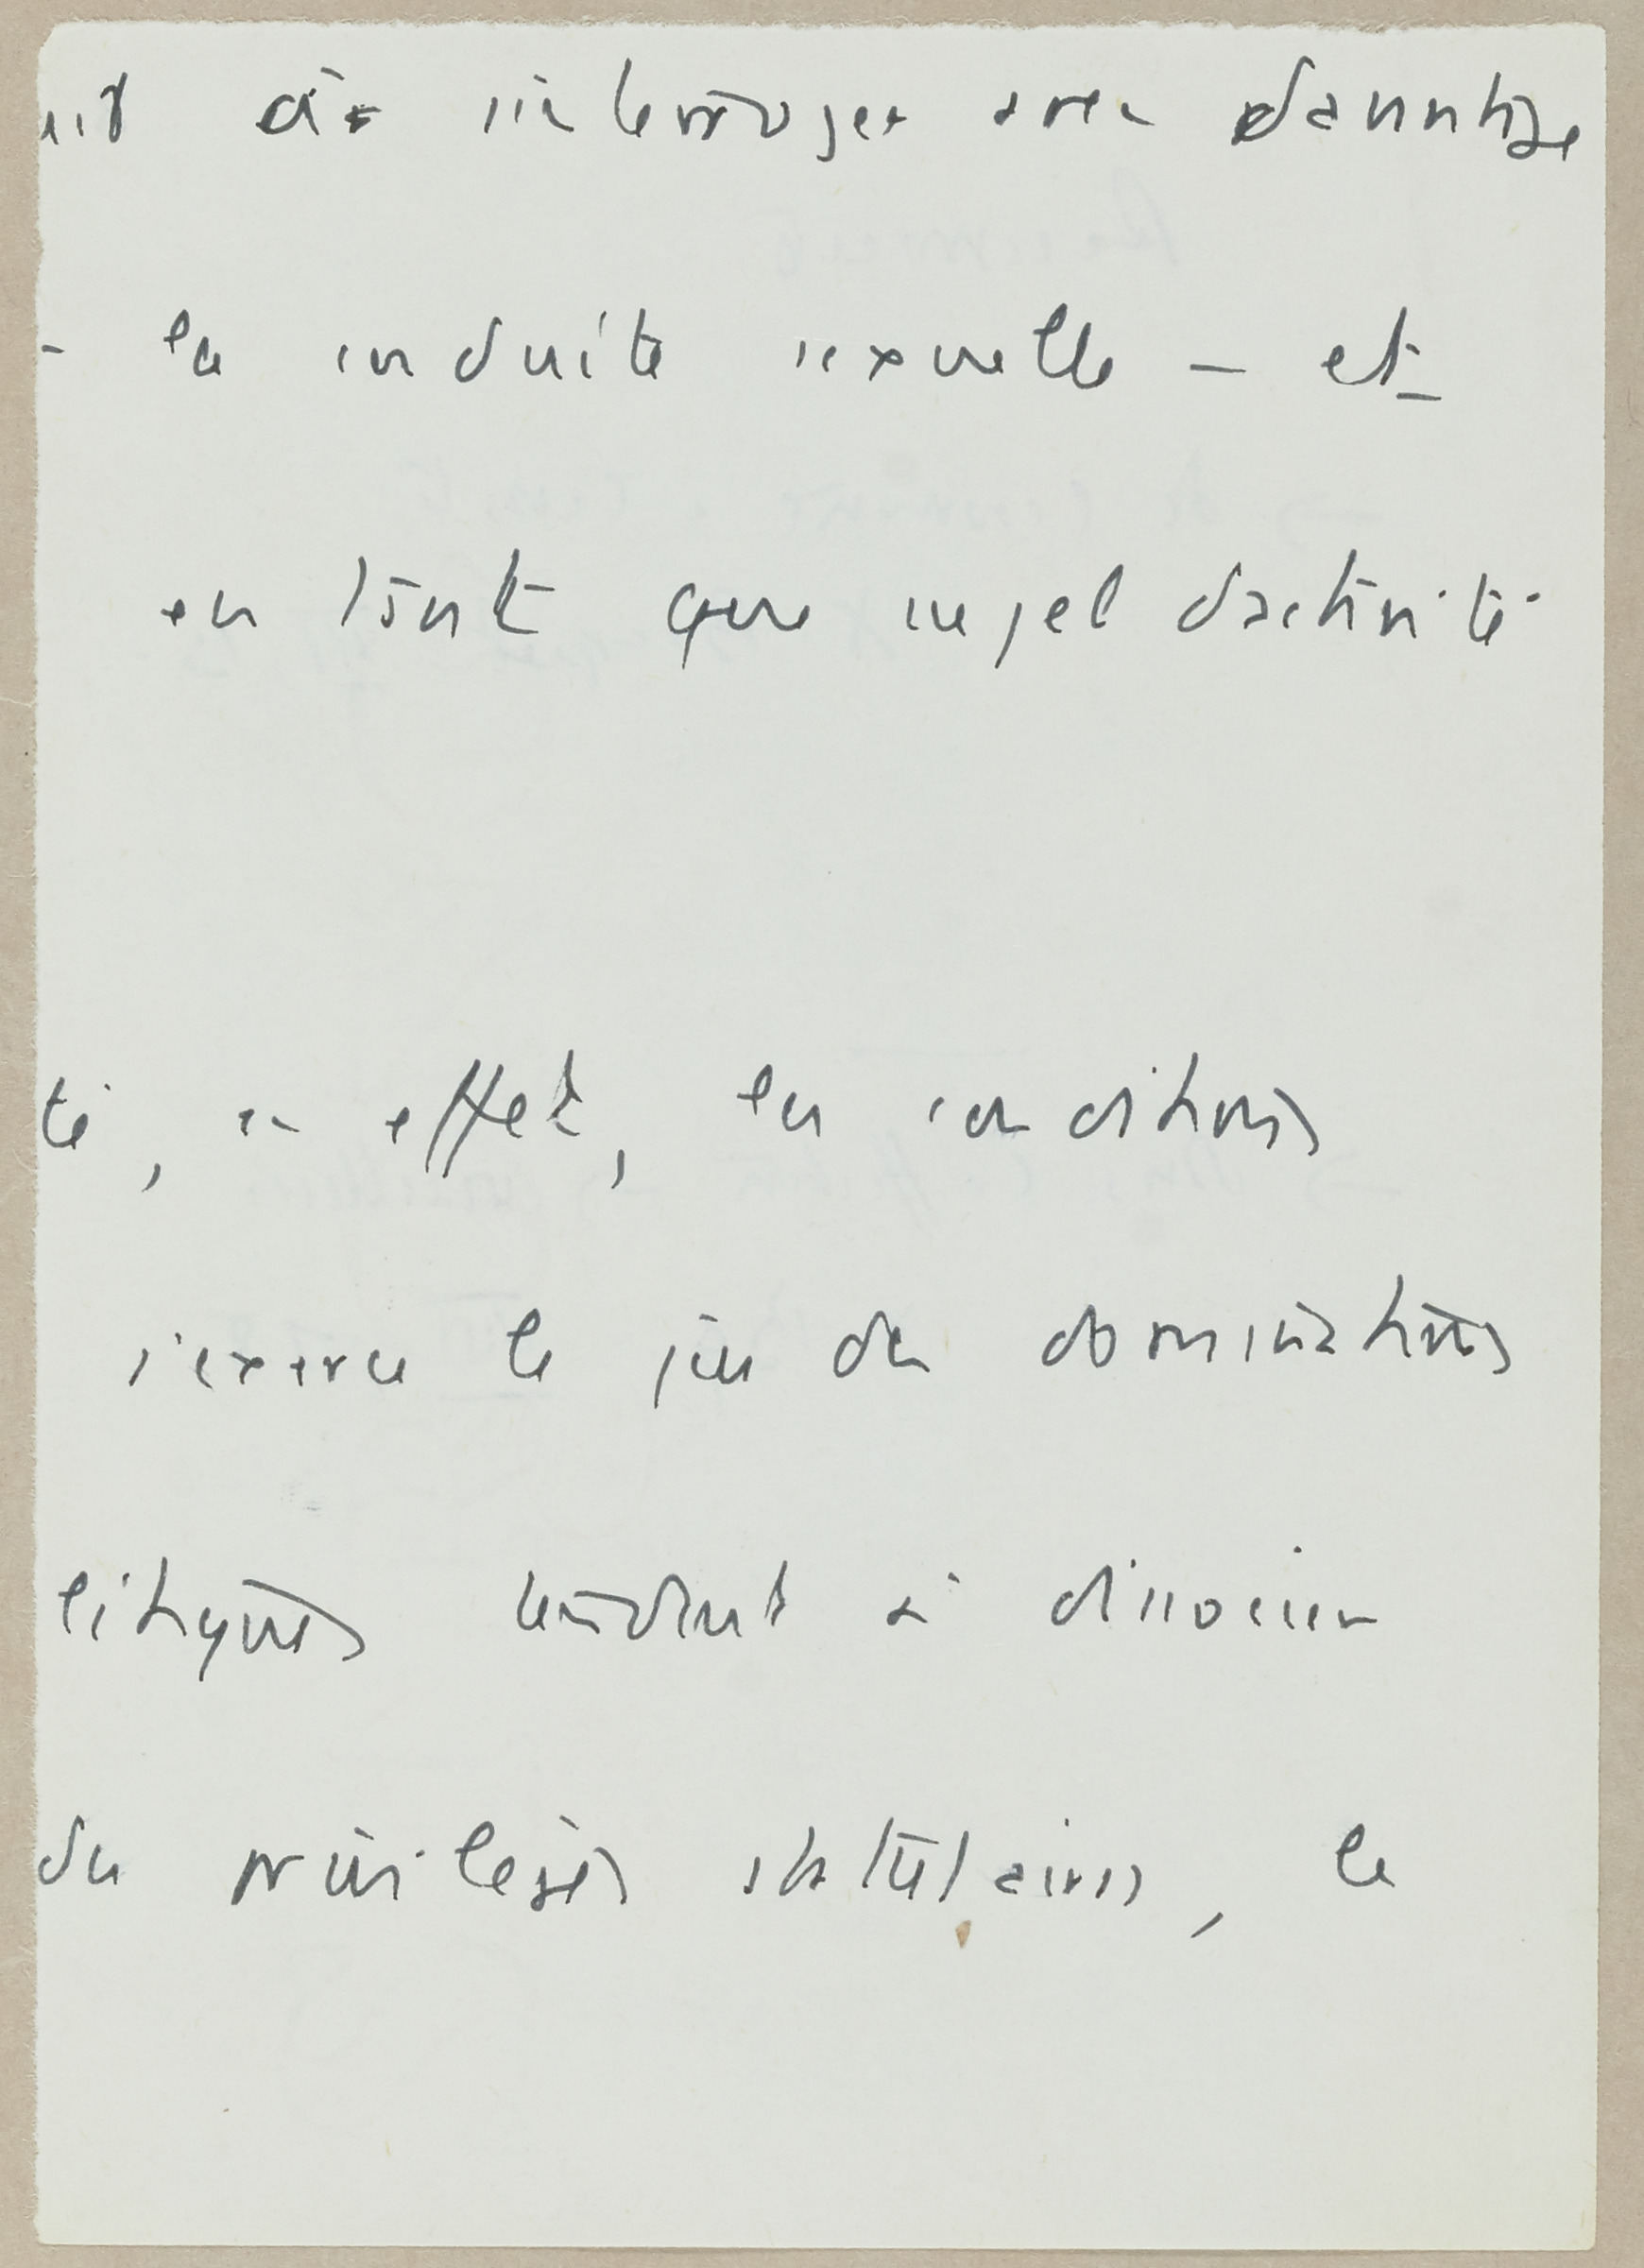 à s'interroger avec davantage
- la conduite sexuelle - et
en tant que sujet d'activité
té, en effet, les conditions
s'exerce le jeu des dominations
litiques tendent à dissocier
des privilèges statutaires, le